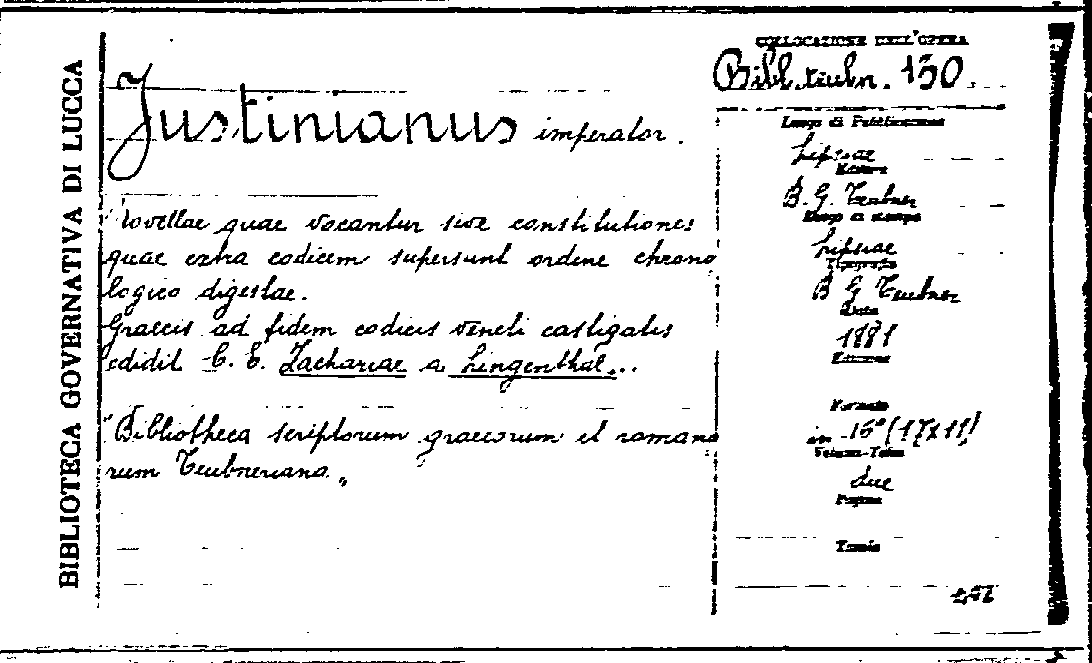 BIBLIOTECA GOVERNATIVA DI LUCCA
COLLOCAZIONE DELL'OPERA
Bibl. teubn. 130.
Justinianus imperator.
Novellae quae vocantur sive constitutiones
quae extra codicem supersunt ordine chrono
logico digestae.
Graecis ad fidem codicis veneti castigatis
edidit C. E. Zachariae a Lingenthal...
"Bibliotheca scriptorum graecorum et romano
rum Teubneriana"
Luogo di Pubblicazione
Lipsiae
Editore
B. G. Teubner
Luogo di stampa
Lipsiae
Tipografo
B G Teubner
Data
1881
Edizione
Formato
in-16° (17x11)
Volume-Tomo
due
Pagine
Tavole